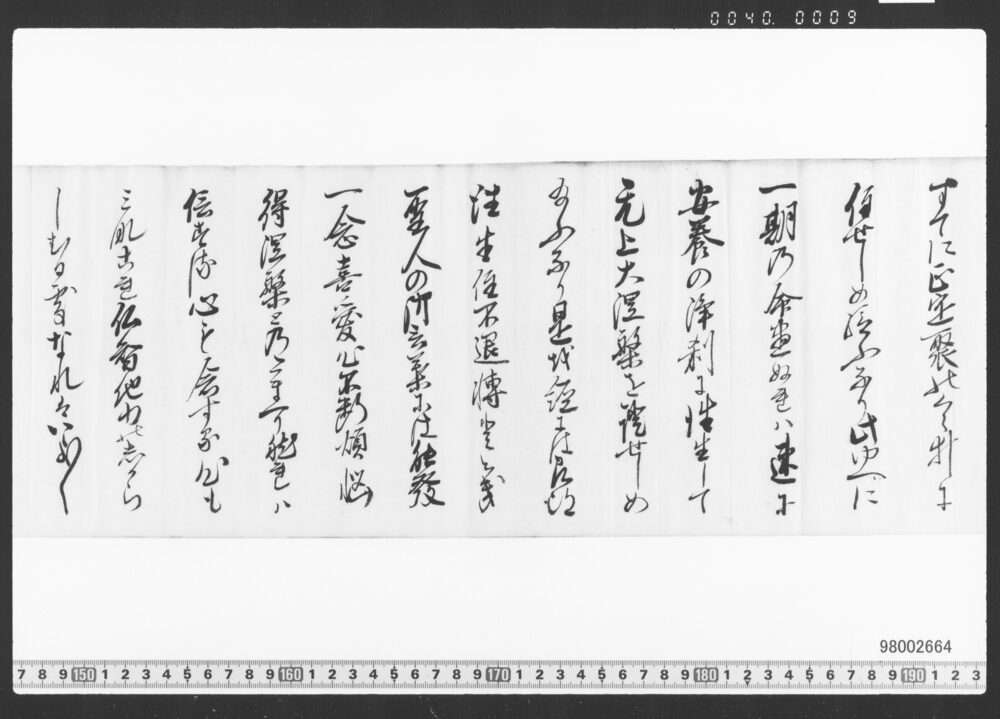 0040. 0009
すてに正定聚のくらゐに
住せしめ給ふなり此ゆへに
一期乃命盡ぬれハ速に
安養の浄刹に往生して
无上大涅槃を證せしめ
給ふなり是を経には即得
往生住不退轉ととき
聖人の御言葉には能發
一念喜愛心不断煩悩
得涅槃と乃
信する心も
これ仏智他力
しむる なれハ
98002664
7 8 9 150 1 2 3 4 5 6 7 8 9 160 1 2 3 4 5 6 7 8 9 170 1 2 3 4 5 6 7 8 9 180 1 2 3 4 5 6 7 8 9 190 1 2 3